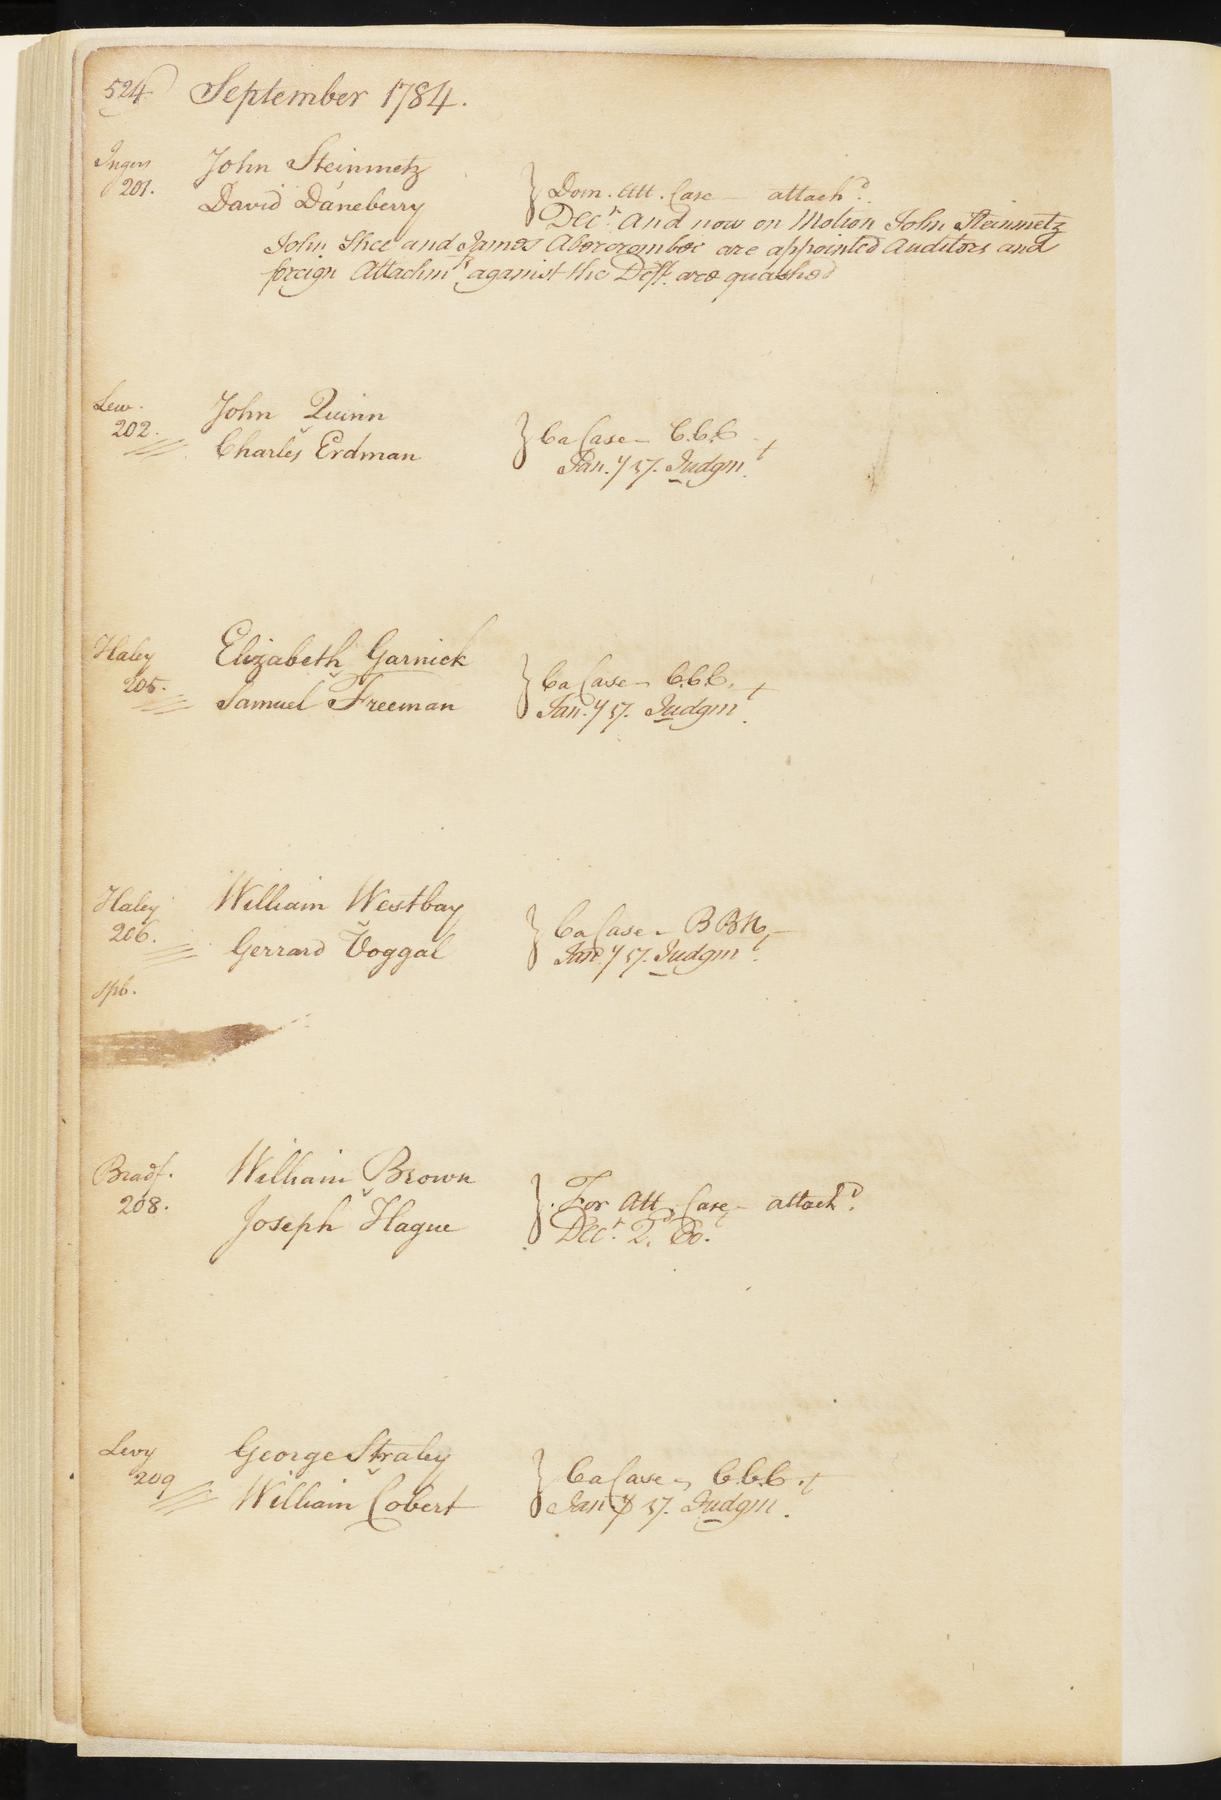 524 September 1784.
Ingers John Steinmetz
201. David Daneberry } Dom. Att. Case — attach.d
Decr. And now on Motion John Steinmetz
John Shee and James Abercrombie are appointed Auditors and
foreign Attachmts. against the Deft. are quashed
Lew. John Quinn
202. v Charles Erdman } Ca Case — C.C.C
Jan.y 17. Judgmt.
Haley Elizabeth Garnick
205. v Samuel Freeman } Ca Case — C.C.C.
Jan.y 17. Judgmt.
Haley William Westbay
206. v Gerrard Voggal } Ca Case —
Jan.y 17. Judgmt.
spb.
Bradf. William Brown
208. v Joseph Hague } For Att. Case — attach.d
Decr.
Levy George Straley
209 v William Cobert } Ca Case — C.C.C.
Jan.y 17. Judgmt.